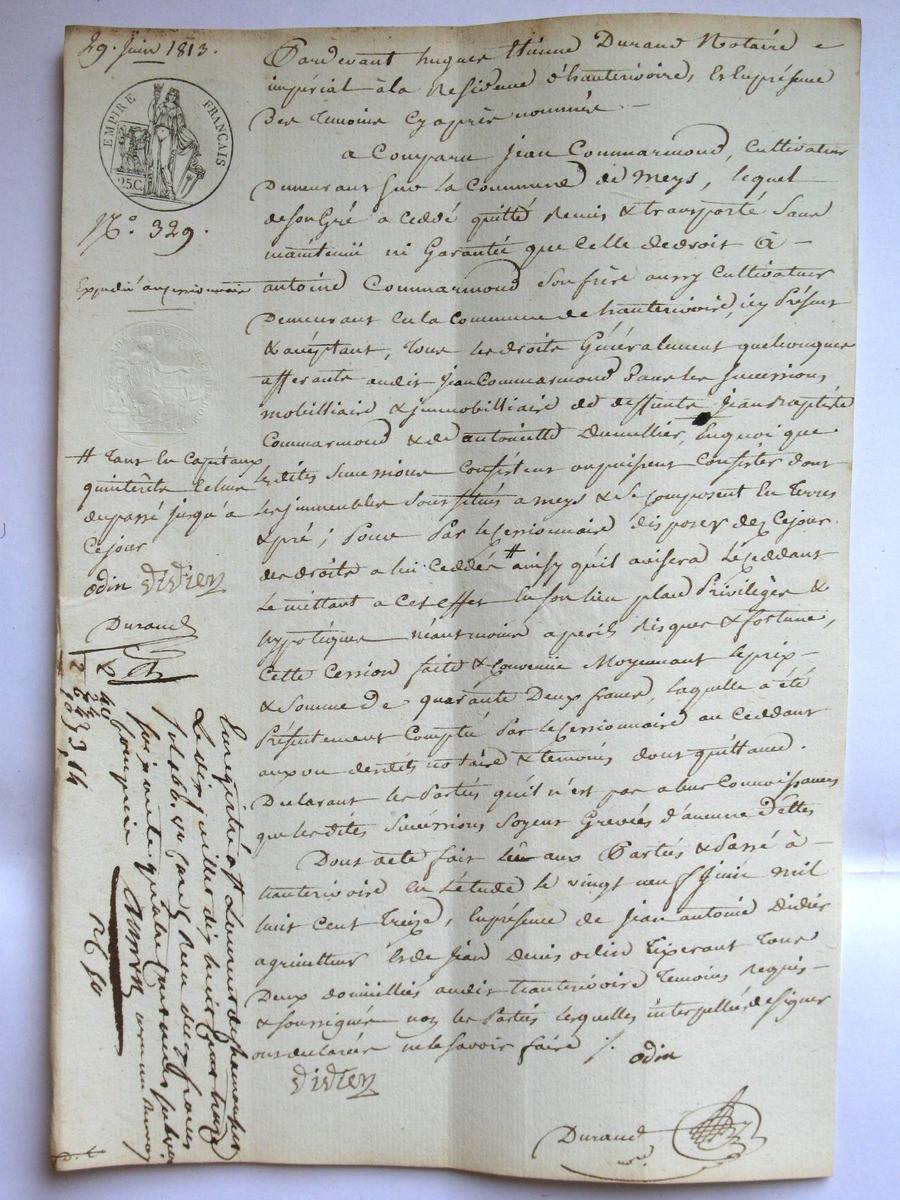 29 Juin 1813.
EMPIRE FRANÇAIS
25 C.
N.° 329.
Expedié au cessionnaire
Pardevant hugues Etienne Durand Notaire
impérial à la Residence d'hauterivoire, & En présence
Des temoins Cy après nommés
a Comparu Jean Commarmond, Cultivateur
Demeurant sur la Commune de Meys, lequel
de son Gré a cédé quitté remis & transporté Sans
maintenüe ni Garantie que Celle de droit à
antoine Commarmond son frère aussy Cultivateur
Demeurant en la Commune de hauterivoire, icy Présent
& acceptant, tous les droits Généralement quelconques
afferants audit Jean Commarmond dans les successions
mobilliaire & immobilliaire de deffunts Jean Baptiste
Commarmond & de antoinette Dumillier, En quoi que
les dites successions Consistent ou puissent Consister dont
les immeubles sont situés a meys & se composent En Terres
& pré; Pour Par le Cessionnaire disposer dez Ce jour
des droits a lui Ceddés # ainsy qu'il avisera le Ceddant
Le mettant a Cet effet En son lieu place Privilèges &
hypotèques néantmoins a perils Risques & fortune,
Cette Cession faite & Convenue Moyennant le prix
& somme de quarante Deux francs, laquelle a été
Présentement Comptée Par le Cessionnaire au Ceddant
aux vu desdits notaire & temoins dont quittance.
Declarant les Parties qu'il n'est pas a leur Connoissance
que les dites Successions soyent Grevées d'aucune dettes
Dont acte fait lu aux Parties & Passé à
hauterivoire En L'étude le vingt neuf Juin mil
huit Cent Treize, En présence de Jean antoine Didier
agriculteur & de Jean Denis odin Tixerant Tous
Deux domiciliés audit hauterivoire Temoins Requis
& soussignés non les Parties lesquelles interpellées de signer
ont declarées ne le savoir faire ./.
odin
Didier
Durand
# Tant En Capitaux
qu'intérêts Echus
du passé jusqu'à
Ce jour
odin Didier
Durand
Enregistré à St Laurent de chamousset
Le dix juillet dix huit Cent treize
reçu deux francs